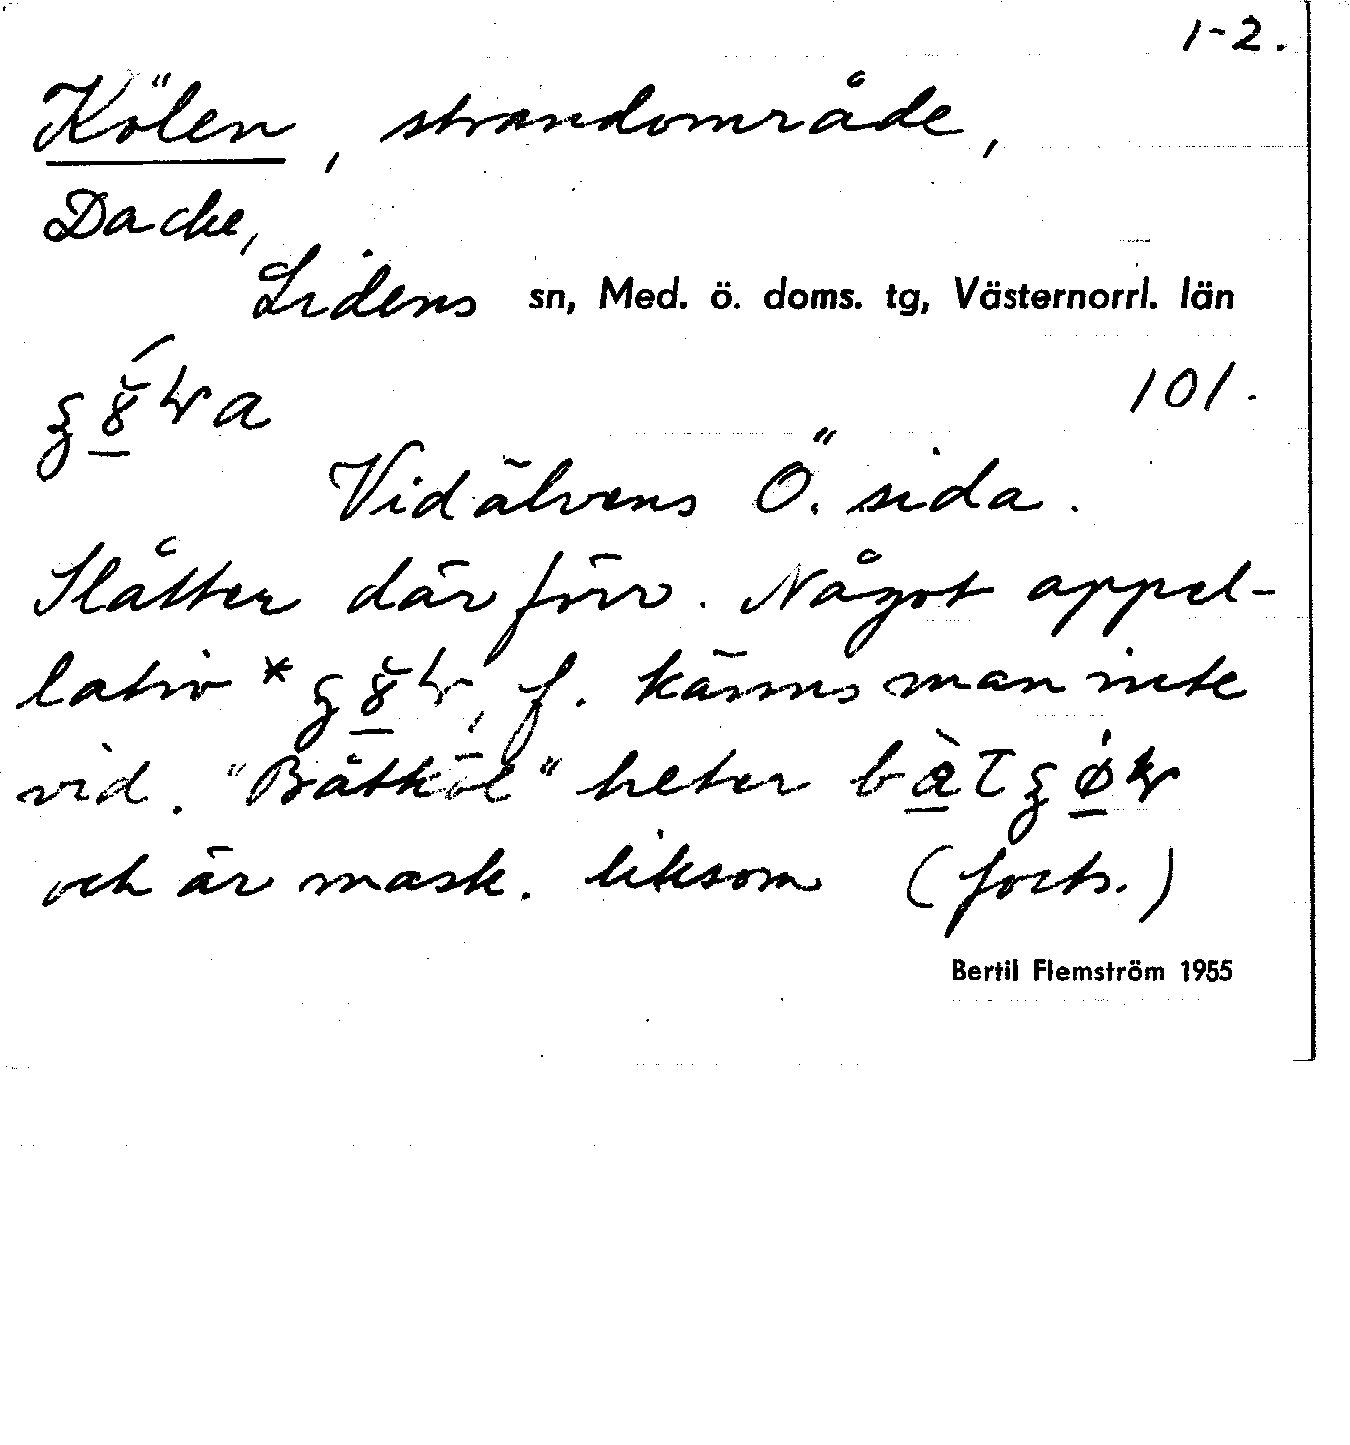 1-2.
Kölen, strandområde,
Dacke,
Lidens sn, Med. ö. doms. tg, Västernorrl. län
101.
Vid älvens Ö. sida.
Slåtter där förr. Något appel-
lativ * f. känns man inte
vid. "Båtköl" heter
och är mask. liksom (forts.)
Bertil Flemström 1955